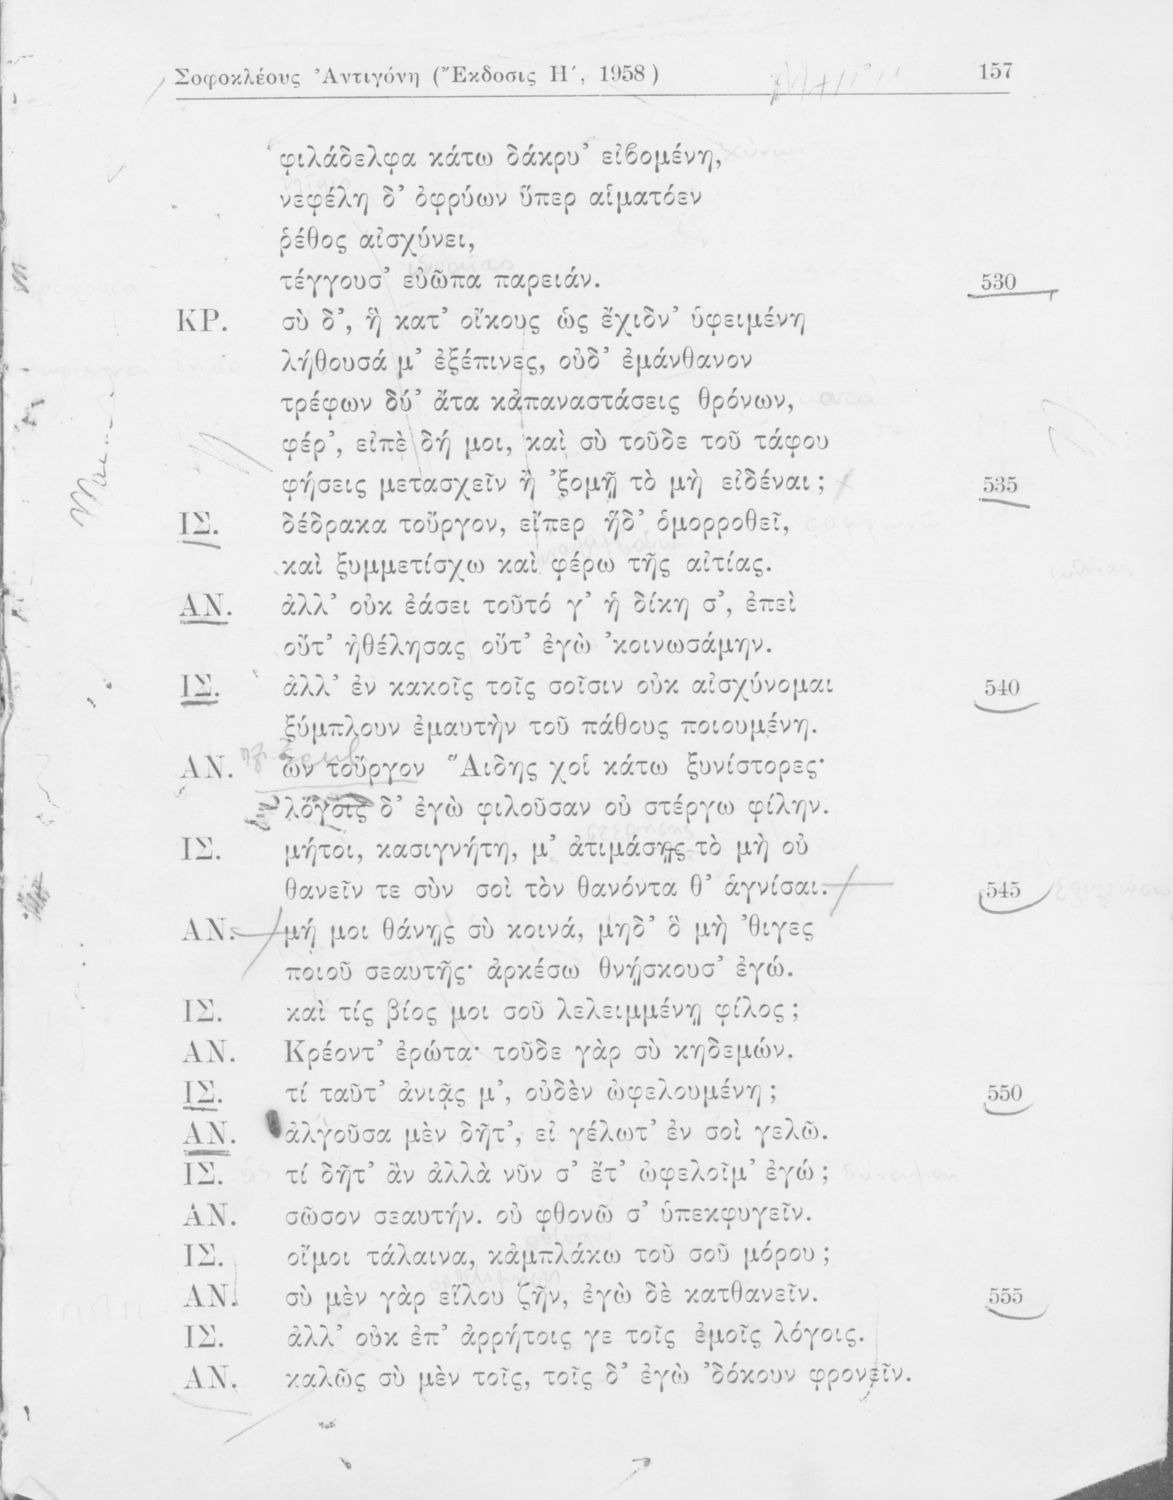 Σοφοκλέους Ἀντιγόνη (Ἔκδοσις Η΄, 1958) 157
φιλάδελφα κάτω δάκρυ’ εἰβομένη,
νεφέλη δ’ ὀφρύων ὕπερ αἱματόεν
ῥέθος αἰσχύνει,
τέγγουσ’ εὐῶπα παρειάν. 530
ΚΡ. σὺ δ’, ἣ κατ’ οἴκους ὡς ἔχιδν’ ὑφειμένη
λήθουσά μ’ ἐξέπινες, οὐδ’ ἐμάνθανον
τρέφων δύ’ ἄτα κἀπαναστάσεις θρόνων,
φέρ’, εἰπὲ δή μοι, καὶ σὺ τοῦδε τοῦ τάφου
φήσεις μετασχεῖν ἢ ’ξομῇ τὸ μὴ εἰδέναι ; 535
ΙΣ. δέδρακα τοὔργον, εἴπερ ἥδ’ ὁμορροθεῖ,
καὶ ξυμμετίσχω καὶ φέρω τῆς αἰτίας.
ΑΝ. ἀλλ’ οὐκ ἐάσει τοῦτό γ’ ἡ δίκη σ’, ἐπεὶ
οὔτ’ ἠθέλησας οὔτ’ ἐγὼ ’κοινωσάμην.
ΙΣ. ἀλλ’ ἐν κακοῖς τοῖς σοῖσιν οὐκ αἰσχύνομαι 540
ξύμπλουν ἐμαυτὴν τοῦ πάθους ποιουμένη.
ΑΝ. ὧν τοὔργον Ἅιδης χοἱ κάτω ξυνίστορες·
λόγοις δ’ ἐγὼ φιλοῦσαν οὐ στέργω φίλην.
ΙΣ. μήτοι, κασιγνήτη, μ’ ἀτιμάσῃς τὸ μὴ οὐ
θανεῖν τε σὺν σοὶ τὸν θανόντα θ’ ἁγνίσαι. 545
ΑΝ. μή μοι θάνῃς σὺ κοινά, μηδ’ ὃ μὴ ’θιγες
ποιοῦ σεαυτῆς· ἀρκέσω θνῄσκουσ’ ἐγώ.
ΙΣ. καὶ τίς βίος μοι σοῦ λελειμμένῃ φίλος ;
ΑΝ. Κρέοντ’ ἐρώτα· τοῦδε γὰρ σὺ κηδεμών.
ΙΣ. τί ταῦτ’ ἀνιᾷς μ’, οὐδὲν ὠφελουμένη ; 550
ΑΝ. ἀλγοῦσα μὲν δῆτ’, εἰ γέλωτ’ ἐν σοὶ γελῶ.
ΙΣ. τί δῆτ’ ἂν ἀλλὰ νῦν σ’ ἔτ’ ὠφελοῖμ’ ἐγώ ;
ΑΝ. σῶσον σεαυτήν. οὐ φθονῶ σ’ ὑπεκφυγεῖν.
ΙΣ. οἴμοι τάλαινα, κἀμπλάκω τοῦ σοῦ μόρου ;
ΑΝ. σὺ μὲν γὰρ εἵλου ζῆν, ἐγὼ δὲ κατθανεῖν. 555
ΙΣ. ἀλλ’ οὐκ ἐπ’ ἀρρήτοις γε τοῖς ἐμοῖς λόγοις.
ΑΝ. καλῶς σὺ μὲν τοῖς, τοῖς δ’ ἐγὼ ’δόκουν φρονεῖν.